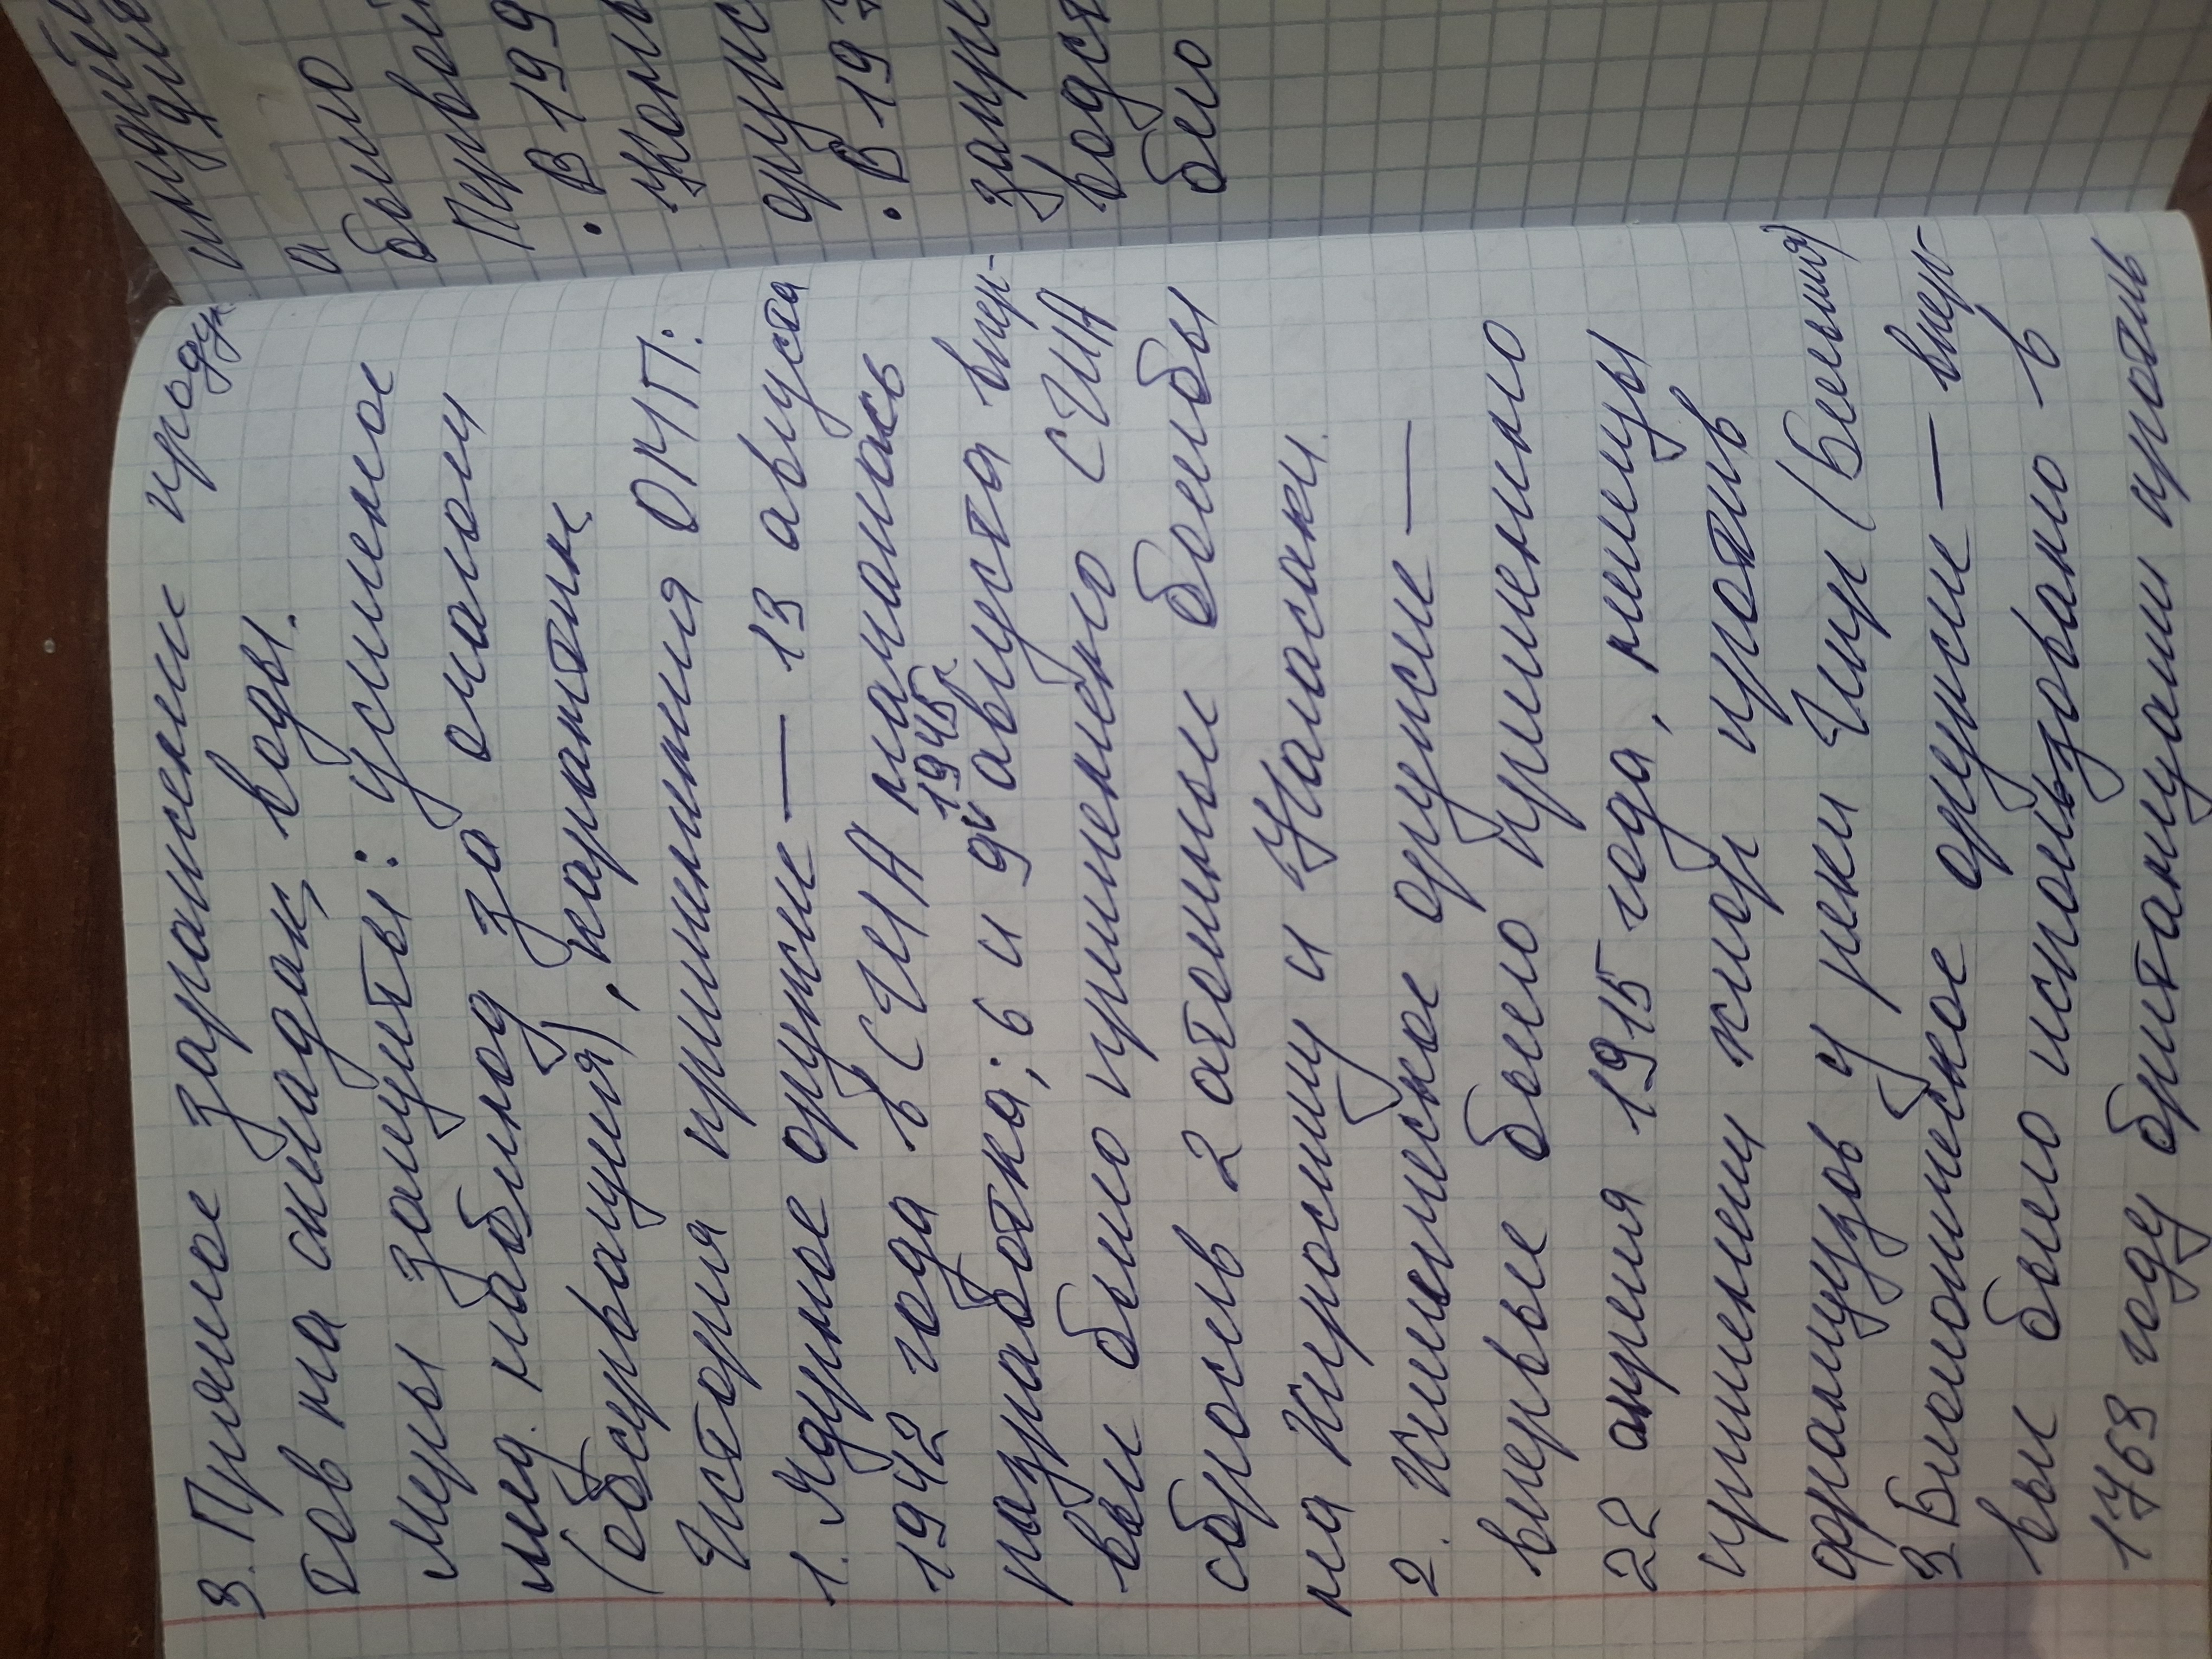 3. Прямое заражение проду
тов на складах, воды.
Меры защиты: усиленное
мед. наблюд за очагом
(обсервация), карантин
История применения ОМП:
1. Ядерное оружие — 13 августа
1942 года в США началась
1945г
разработка; 6 и 9 августа впер-
вые было применено США
сбросив 2 атомные бомбы
на Хиросиму и Нагасаки.
2. Химическое оружие —
впервые было применено
22 апреля 1915 года, немцы
применили хлор против
французов у реки Ипр (Бельгия)
3. Биологическое оружие — впер-
вые было использовано в
1763 году британцами против
а
было
Перво
• В 199
оруж
• В 197
запре
было